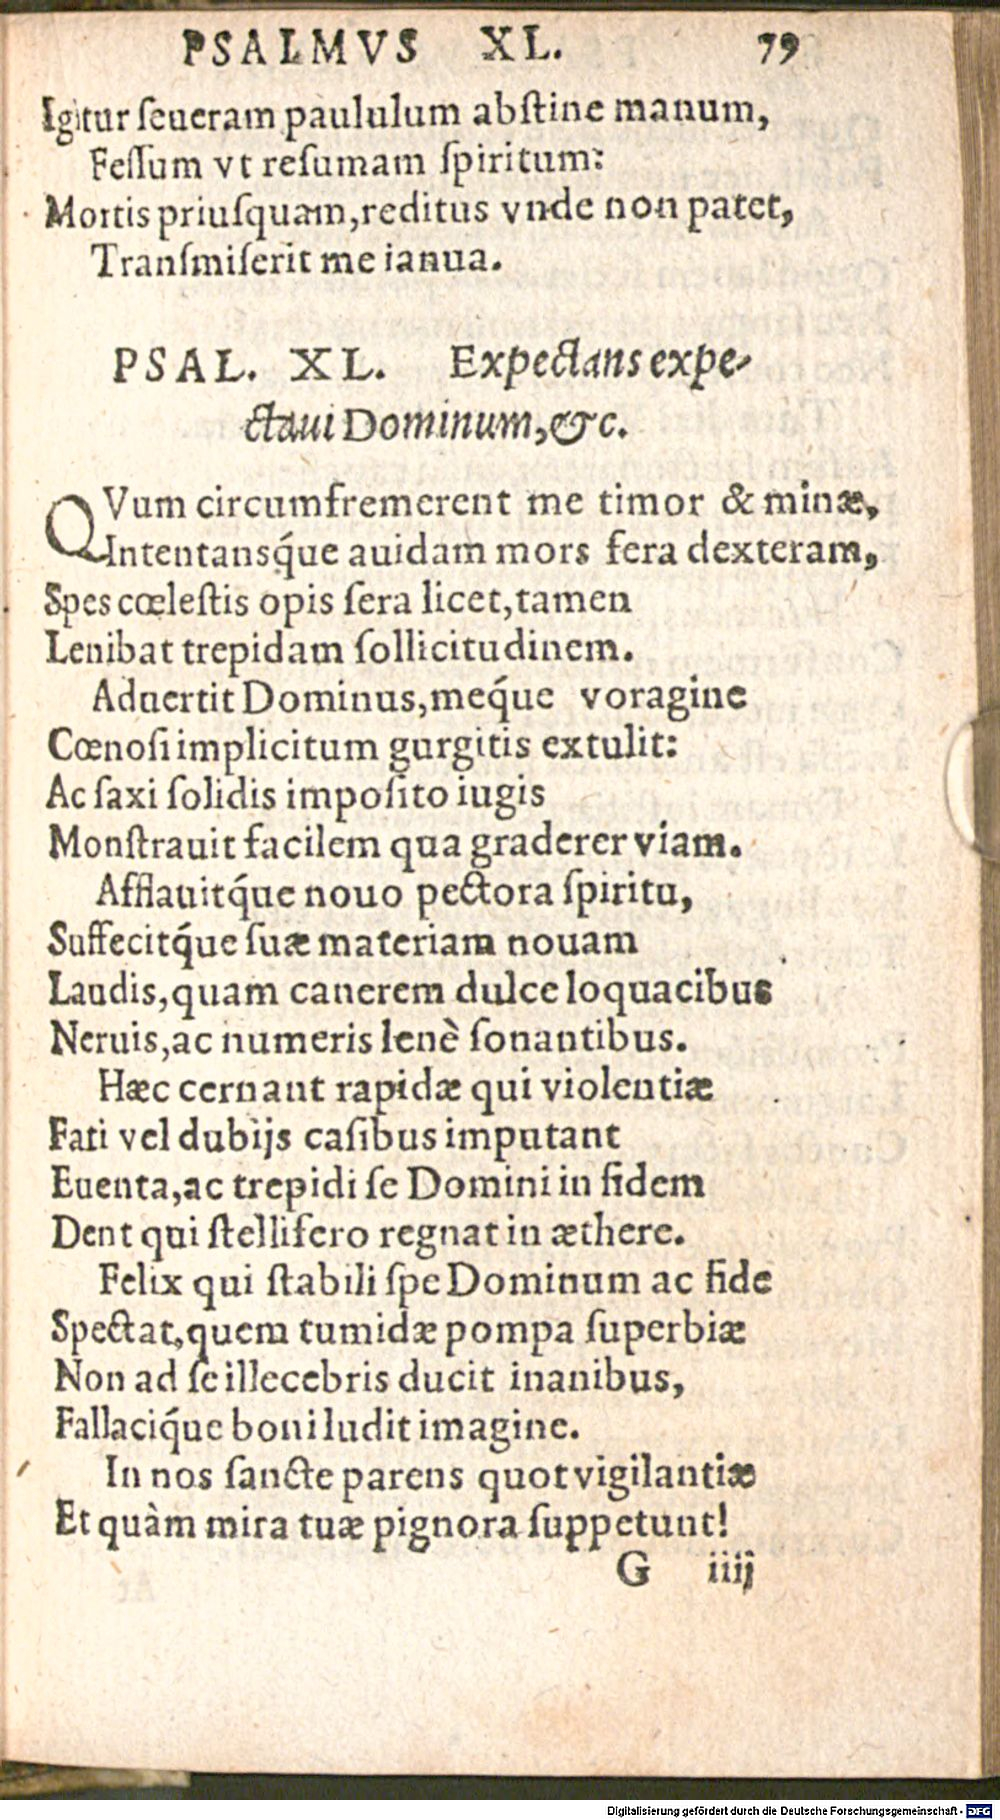 PSALMVS XL. 79
Igitur ſeueram paululum abſtine manum,
Feſſum vt reſumam ſpiritum:
Mortis priuſquam, reditus vnde non patet,
Tranſmiſerit me ianua.
PSAL. XL. Expectans expe-
ctaui Dominum, &c.
QVum circumfremerent me timor & minæ,
Intentansq́ue auidam mors fera dexteram,
Spes cœleſtis opis ſera licet, tamen
Lenibat trepidam ſollicitudinem.
Aduertit Dominus, meq́ue voragine
Cœnoſi implicitum gurgitis extulit:
Ac ſaxi ſolidis impoſito iugis
Monſtrauit facilem qua graderer viam.
Afflauitq́ue nouo pectora ſpiritu,
Suffecitq́ue ſuæ materiam nouam
Laudis, quam canerem dulce loquacibus
Neruis, ac numeris lenè ſonantibus.
Hæc cernant rapidæ qui violentiæ
Fati vel dubijs caſibus imputant
Euenta, ac trepidi ſe Domini in fidem
Dent qui ſtellifero regnat in æthere.
Felix qui ſtabili ſpe Dominum ac fide
Spectat, quem tumidæ pompa ſuperbiæ
Non ad ſe illecebris ducit inanibus,
Fallaciq́ue boni ludit imagine.
In nos ſancte parens quot vigilantiæ
Et quàm mira tuæ pignora ſuppetunt!
G iiij
Digitalisierung gefördert durch die Deutsche Forschungsgemeinschaft - DFG